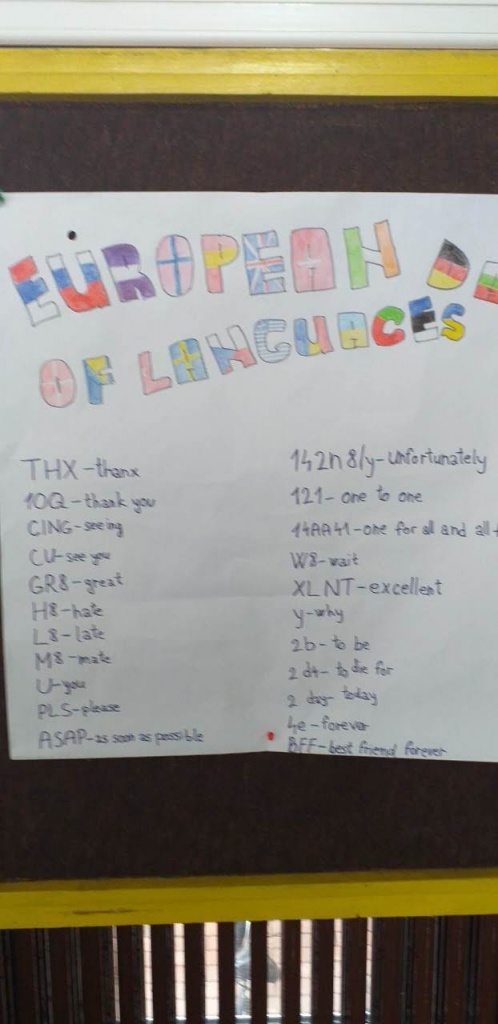 EUROPEAN D
OF LANGUAGES
THX - thanx
10Q - thank you
CING - seeing
CU - see you
GR8 - great
H8 - hate
L8 - late
M8 - mate
U - you
PLS - please
ASAP - as soon as possible
142n8ly - unfortunately
121 - one to one
14AA41 - one for all and all
W8 - wait
XLNT - excellent
y - why
2b - to be
2 d4 - to die for
2 day - today
4e - forever
BFF - best friend forever